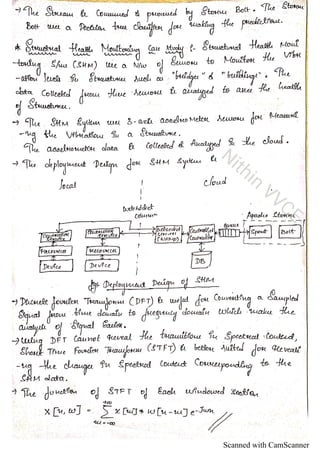 → The Stream is consumed & processed by Storm Bolt. The Storm
Bolt use a Decision tree Classifier for making the prediction.
* Structural Health Monitoring Case Study :- Structural Health Moni
-toring S/m (SHM) use a N/w of Sensors to Monitor the Vibr
-ation levels in Structures such as "bridges" & "buildings". The
data Collected from these sensors is analyzed to asses the health
of Structures.
→ The SHM System use 3-axis accelerometer Sensors for Measuri
-ng the Vibrations in a Structure.
The accelerometer data is Collected & Analyzed in the cloud.
→ The deployment Design for SHM System is
local
cloud
WebSocket
Connection
Apache Storm
Queue
Controller
Service
Controller
Service
WebSocket
Service
(WAMP)
Controller
Spout
Bolt
Resources
Resources
DB
Device
Device
Deployment Design of SHM
→ Discrete fourier Transform (DFT) is useful for Converting a Sampled
Signal from time domain to frequency domain which make the
analysis of Signal Easier.
→ Using DFT Cannot reveal the transitions in Spectral Content,
Short Time Fourier Transform (STFT) is better Suited for Reveali
-ng the changes in Spectral Content Corresponding to the
SHM data.
→ The function of STFT of Each windowed section
+∞
X[n,ω] = Σ x[m] * w[n-m] e-Jωn
m=-∞
Nithin VVCE
Scanned with CamScanner